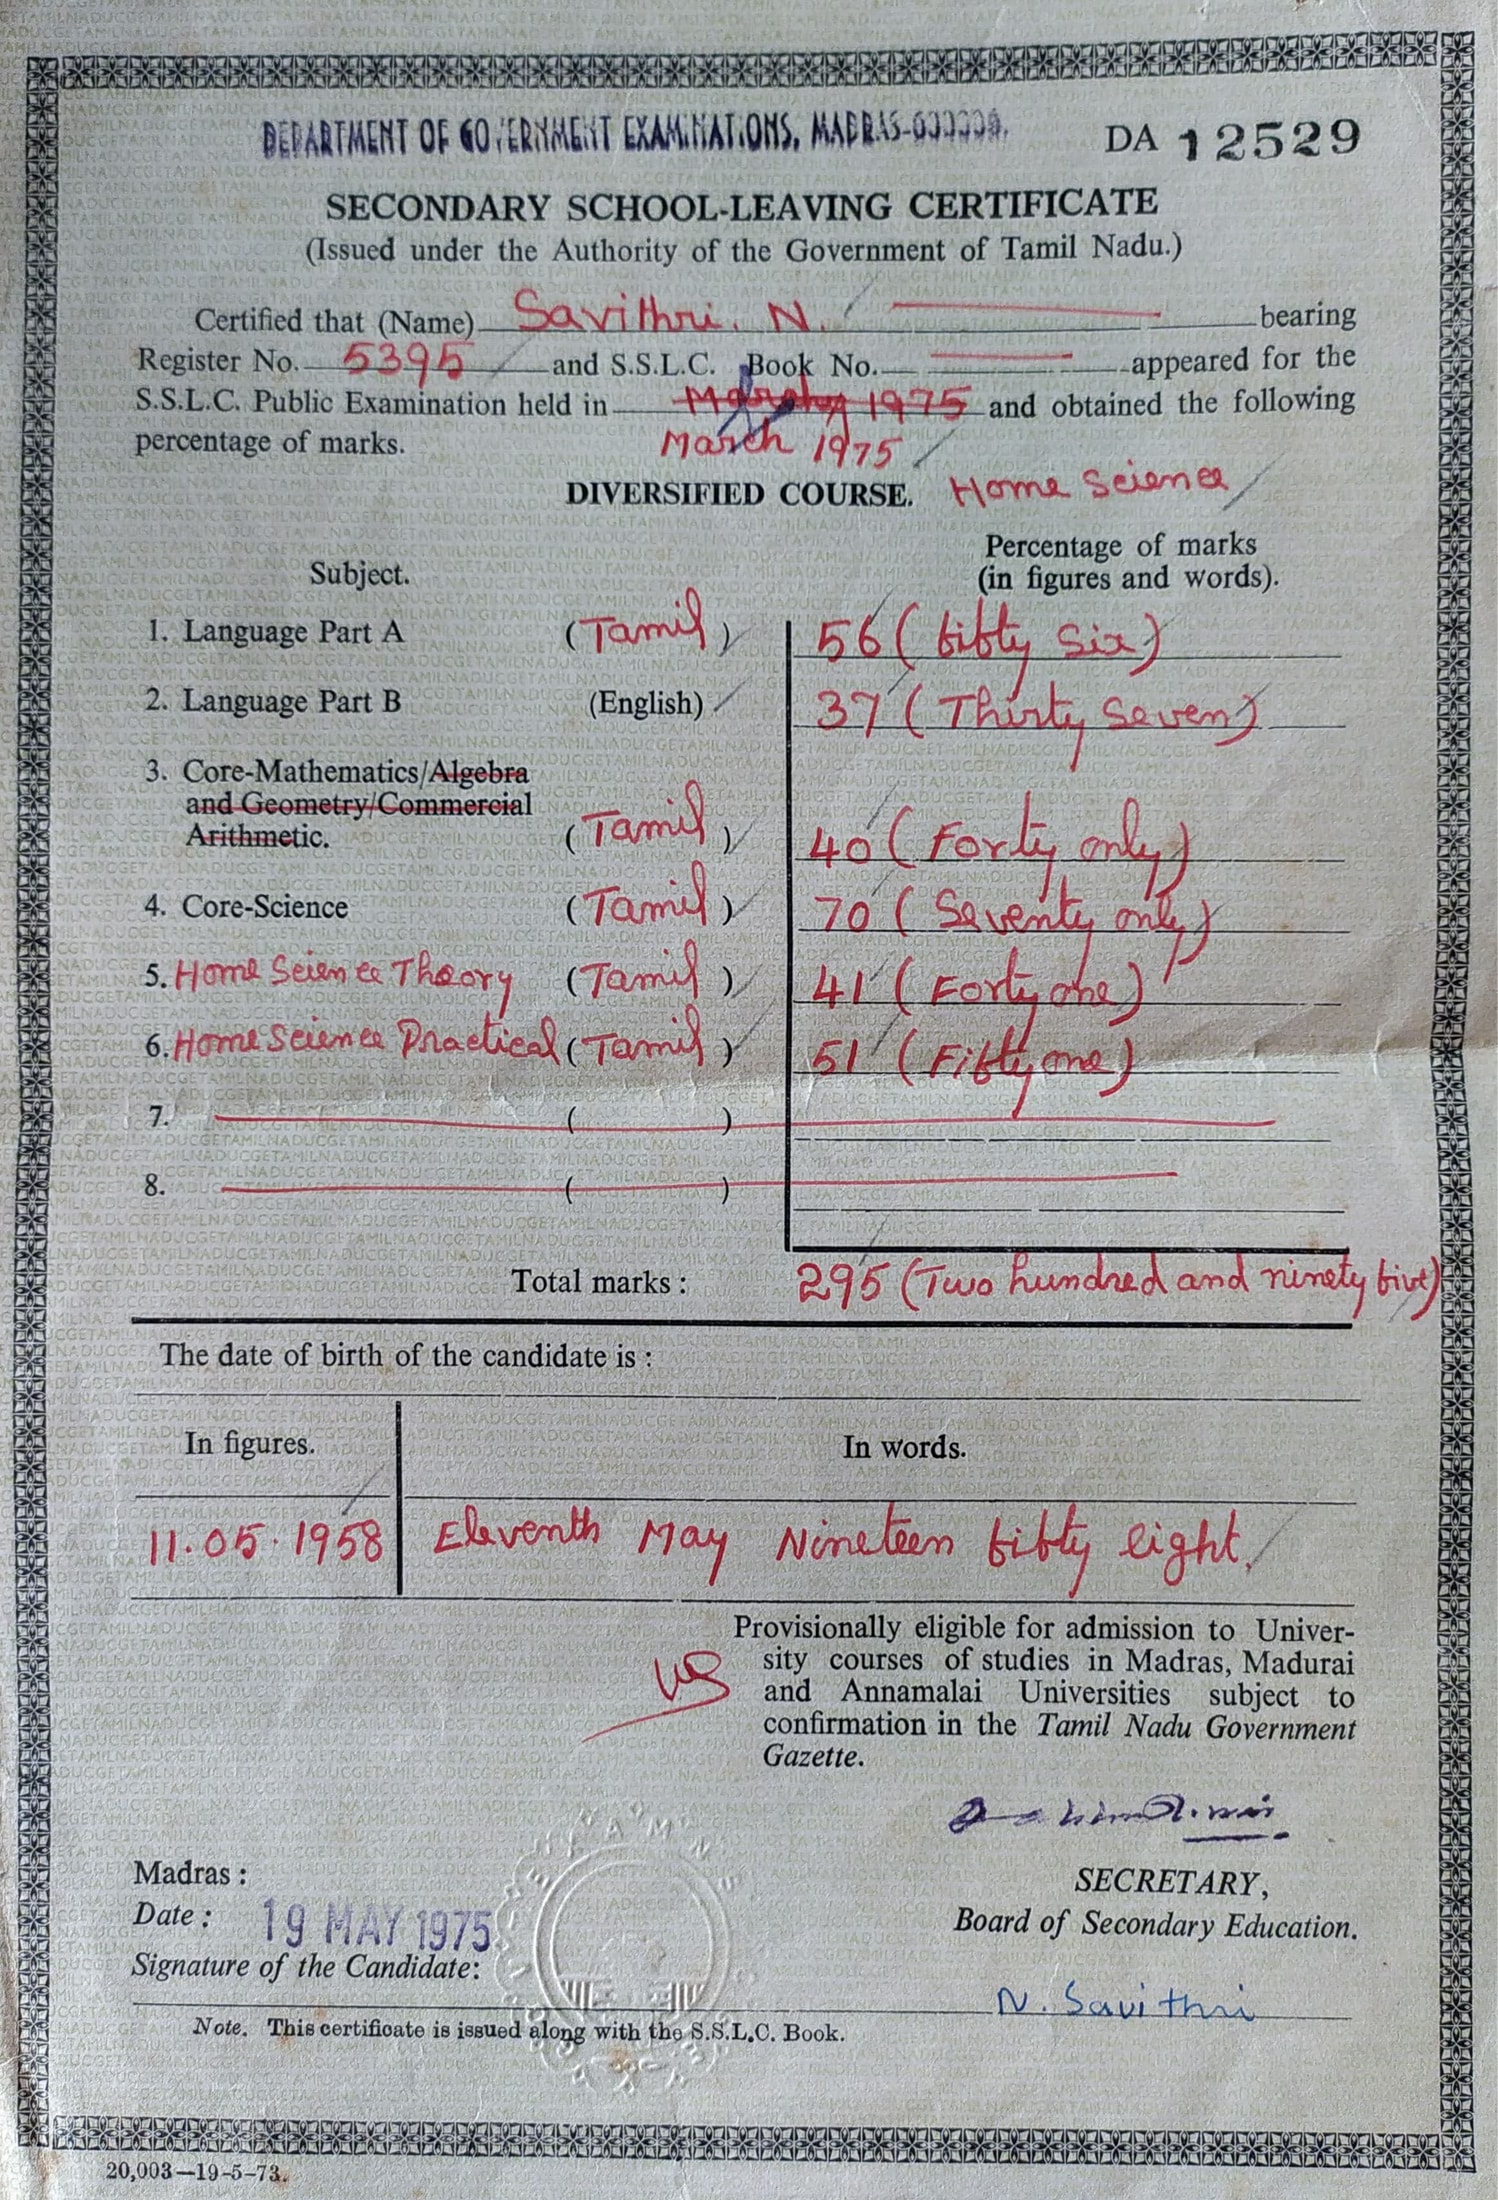 DEPARTMENT OF GOVERNMENT EXAMINATIONS, MADRAS-600006.
DA 12529
SECONDARY SCHOOL-LEAVING CERTIFICATE
(Issued under the Authority of the Government of Tamil Nadu.)
Certified that (Name) Savithri. N. bearing
Register No. 5395 and S.S.L.C. Book No. appeared for the
S.S.L.C. Public Examination held in 1975 and obtained the following
percentage of marks. March 1975
DIVERSIFIED COURSE. Home Science
Subject. Percentage of marks
(in figures and words).
1. Language Part A (Tamil) 56 (fifty Six)
2. Language Part B (English) 37 (Thirty Seven)
3. Core-Mathematics/Algebra
and Geometry/Commercial
Arithmetic. (Tamil) 40 (Forty only)
4. Core-Science (Tamil) 70 (Seventy only)
5. Home Science Theory (Tamil) 41 (Forty one)
6. Home Science Practical (Tamil) 51 (Fifty one)
7. ( )
8. ( )
Total marks : 295 (Two hundred and ninety five)
The date of birth of the candidate is :
In figures. In words.
11.05.1958 Eleventh May Nineteen fifty eight.
Provisionally eligible for admission to Univer-
sity courses of studies in Madras, Madurai
and Annamalai Universities subject to
confirmation in the Tamil Nadu Government
Gazette.
Madras :
SECRETARY,
Date : 19 MAY 1975
Board of Secondary Education.
Signature of the Candidate:
N. Savithri
Note. This certificate is issued along with the S.S.L.C. Book.
20,003—19-5-73.